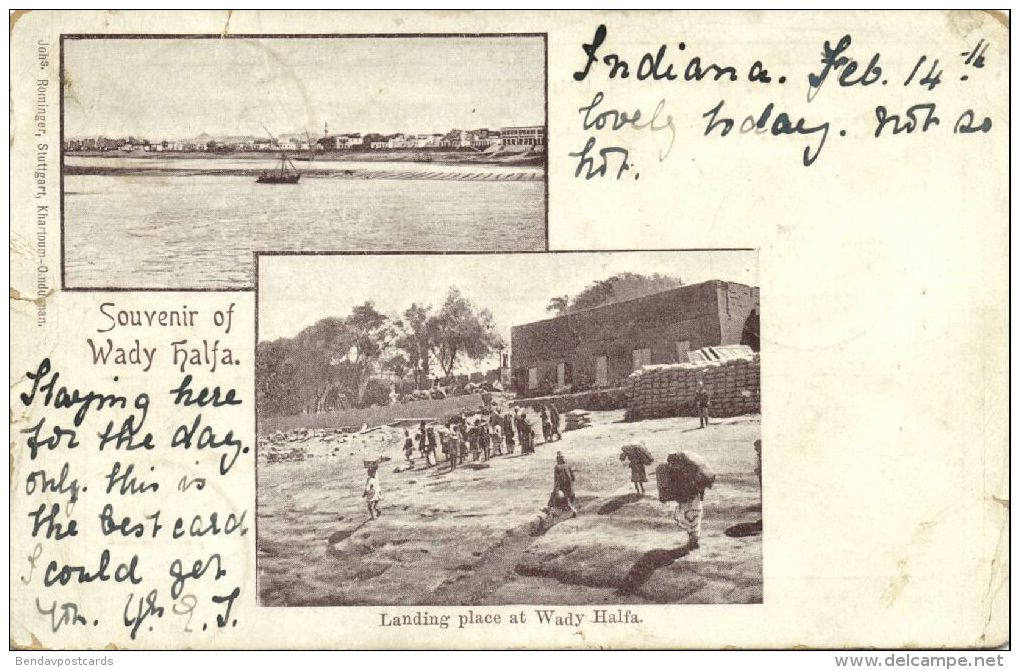 Johs. Rominger, Stuttgart, Khartoum-Omdurman.
Indiana. Feb. 14th
lovely today. not so
hot.
Souvenir of
Wady Halfa.
Staying here
for the day
only. this is
the best card
I could get
you. Yrs
Landing place at Wady Halfa.
Bendavpostcards
http://www.delcampe.net